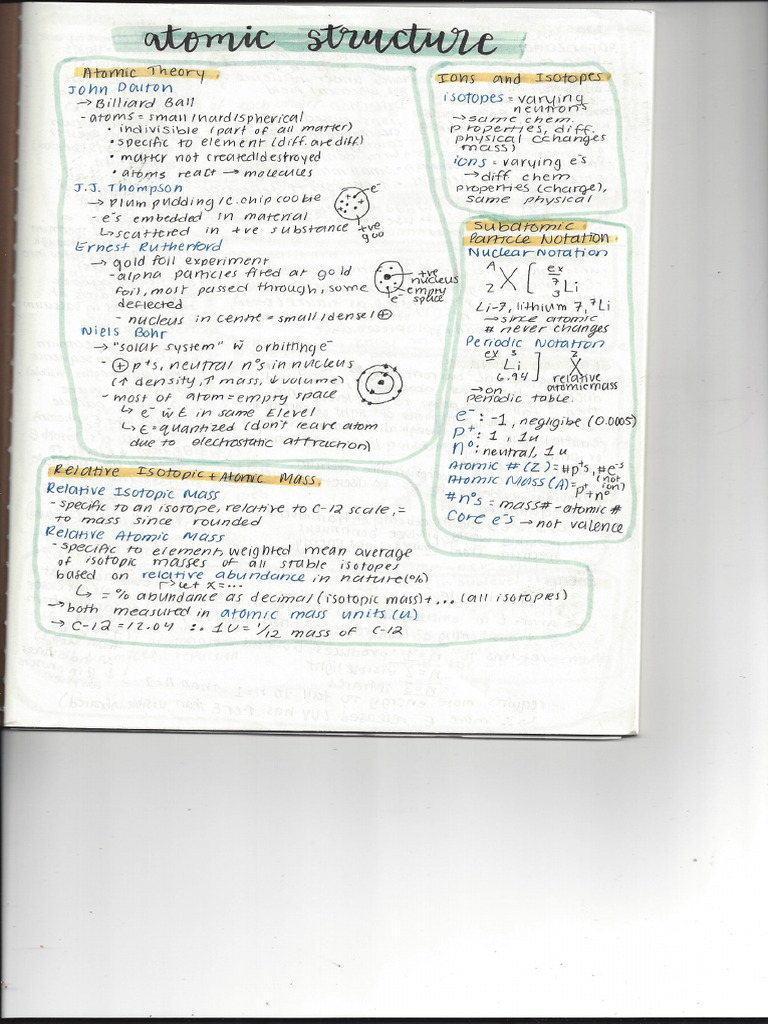 atomic structure
Atomic Theory
John Dalton
→ Billiard Ball
- atoms = small/hard/spherical
• indivisible (part of all matter)
• specific to element (diff. are diff.)
• matter not created/destroyed
• atoms react → molecules
J.J. Thompson
→ plum pudding/c.chip cookie
- e⁻s embedded in material
↳ scattered in +ve substance
e⁻
+ve
goo
Ernest Rutherford
→ gold foil experiment
- alpha particles fired at gold
foil, most passed through, some
deflected
- nucleus in centre = small/dense/⊕
+ve
nucleus
empty
space
e⁻
Niels Bohr
→ "solar system" w orbiting e⁻
- ⊕ p⁺s, neutral n°s in nucleus
(↑ density, ↑ mass, ↓ volume)
- most of atom = empty space
↳ e⁻ w E in same E level
↳ E = quantized (don't leave atom
due to electrostatic attraction)
Ions and Isotopes
isotopes = varying
neutrons
→ same chem.
properties, diff.
physical (changes
mass)
ions = varying e⁻s
→ diff chem.
properties (charge),
same physical
Subatomic
Particle Notation
Nuclear Notation
A
Z X [ ex 7 3 Li
Li-7, lithium 7, ⁷Li
→ since atomic
# never changes
Periodic Notation
ex 3 Li 6.94 ] Z X
relative
atomic mass
→ on
periodic table
e⁻: -1, negligibe (0.0005)
p⁺: 1, 1u
n°: neutral, 1u
Atomic # (Z) = #p⁺s, #e⁻s
(not
ion)
Atomic Mass (A) = p⁺+n°
#n°s = mass# - atomic #
Core e⁻s → not valence
Relative Isotopic + Atomic Mass
Relative Isotopic Mass
- specific to an isotope, relative to C-12 scale, =
to mass since rounded
Relative Atomic Mass
- specific to element, weighted mean average
of isotopic masses of all stable isotopes
based on relative abundance in nature (%)
↱ let x = ...
↳ = % abundance as decimal (isotopic mass) + ... (all isotopies)
→ both measured in atomic mass units (u)
→ C-12 = 12.04 ∴ 1u = 1/12 mass of C-12